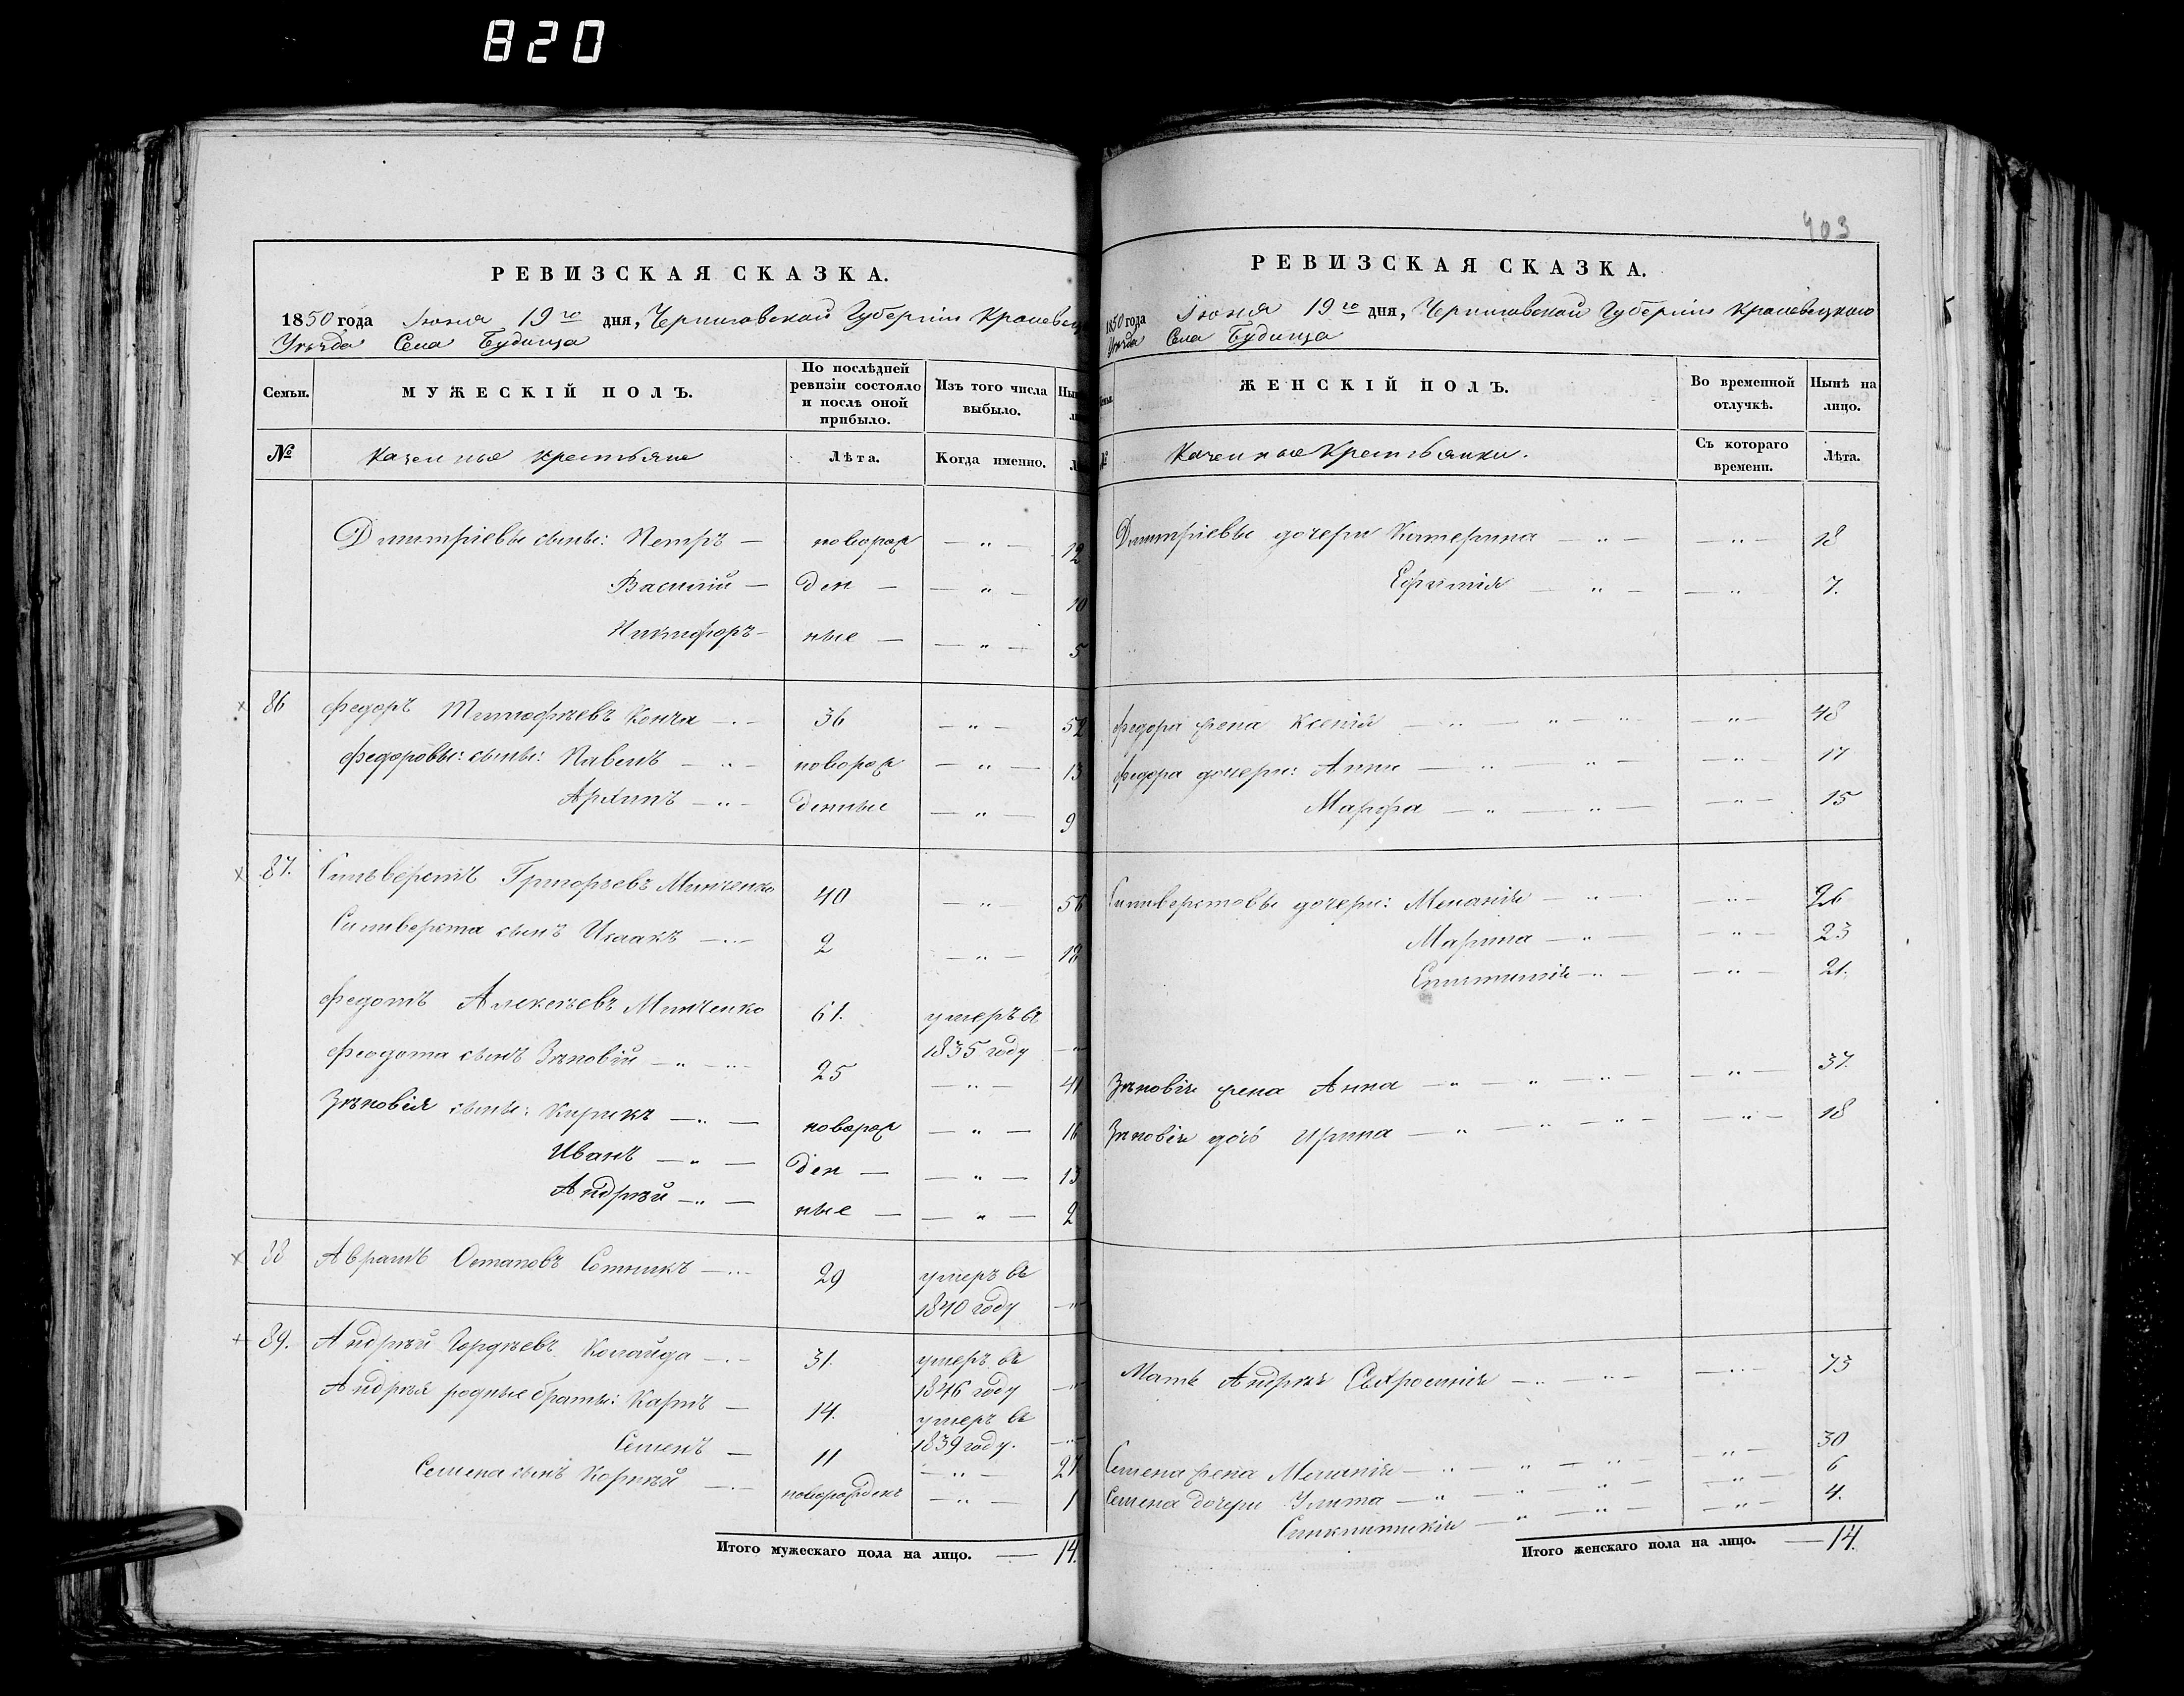 820
403
РЕВИЗСКАЯ СКАЗКА.
1850 года Іюня 19го дня, Черниговской Губерніи Кролевец
Уѣзда Села Будища
Семьи.
МУЖЕСКІЙ ПОЛЪ.
По послѣдней
ревизіи состояло
и послѣ оной
прибыло.
Изъ того числа
выбыло.
Ны
№
Казенные крестьяне
Лѣта.
Когда именно.
Дмитріевы сыны: Петръ — новорож — „ — 12
Василій — ден — — „ — 10
Никифоръ — ные — — „ — 5
86 Федоръ Тимофѣевъ Конча — „ — 36 — „ — 52
Федоровы: сыны: Павелъ — „ — новорож — „ — 13
Архипъ — „ — денные — „ — 9
87. Сильверстъ Григорьевъ Минченко 40 — „ — 56
Сильверста сынъ Исаакъ — „ — 2 — „ — 18
Федотъ Алексѣевъ Минченко 61. умеръ въ
1835 году — „ —
Феодота сынъ Зѣновій — „ — „ — 25 — „ — 41
Зѣновія сыны: Кирикъ — „ — новорож — „ — 16
Иванъ — „ — ден — — „ — 13
Андрѣй — „ — ные — — „ — 2
88 Аврамъ Остаповъ Сотникъ — „ — 29 умеръ въ
1840 году — „ —
89. Андрѣй Гордѣевъ Колайда — „ — 31. умеръ въ
1846 году — „ —
Андрѣя родные браты: Карпъ — 14. умеръ въ
1839 году. — „ —
Семенъ — 11 — „ — 27
Семена сынъ Корнѣй — „ — новорожденъ — „ — 1
Итого мужескаго пола на лицо. — 14.
РЕВИЗСКАЯ СКАЗКА.
1850 года Іюня 19го дня, Черниговской Губерніи Кролевецкого
Уѣзда Села Будища
ЖЕНСКІЙ ПОЛЪ.
Во временной
отлучкѣ.
Нынѣ на
лицо.
№
Казенные Крестьянки.
Съ котораго
времени.
Лѣта.
Дмитріевы дочери Катерина — „ — — „ — 18
Ефимія — „ — — „ — 7.
Федора жена Ксенія — „ — „ — „ — „ — 48
Федора дочери: Анна — „ — „ — — „ — 17
Марфа — „ — „ — — „ — 15
Сильверстовы дочери: Меланія — „ — — „ — 26
Марина — „ — — „ — 23
Епистимія — „ — — „ — 21.
Зѣновія жена Анна — „ — „ — „ — — „ — 37.
Зѣновія дочь Ирина — „ — „ — „ — — „ — 18
Мать Андрѣя — „ — „ — — „ — 73
Семена жена Меланія — „ — „ — „ — „ — 30
Семена дочери Улита — „ — „ — „ — „ — 6
Синклитикія — „ — „ — — „ — 4.
Итого женскаго пола на лицо. — 14.